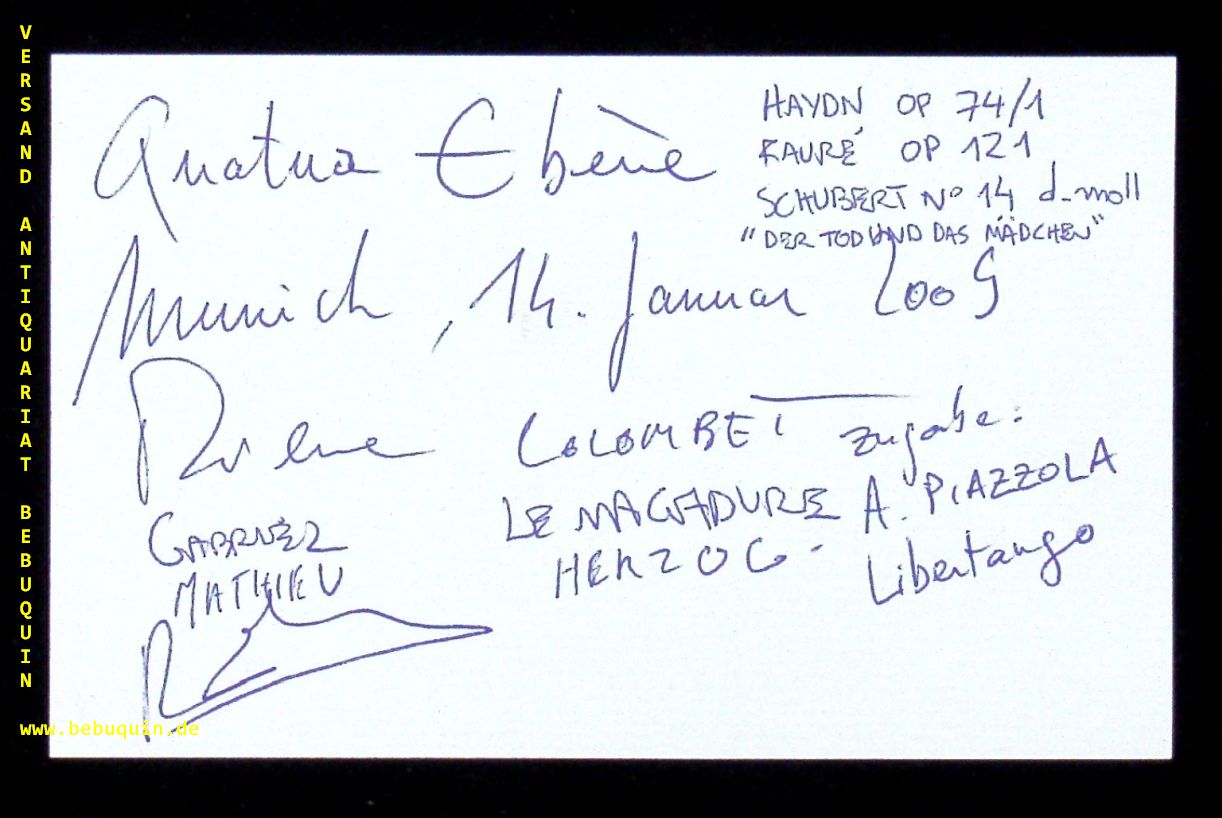 Quatuor Ebène
HAYDN OP 74/1
FAURÉ OP 121
SCHUBERT Nº 14 d-moll
"DER TOD UND DAS MÄDCHEN"
Munich, 14. Januar 2009
Pierre COLOMBET
GABRIEL LE MAGADURE
MATHIEU HERZOG
Zugabe:
A. PIAZZOLA
Libertango
VERSAND ANTIQUARIAT BEBUQUIN
www.bebuquin.de